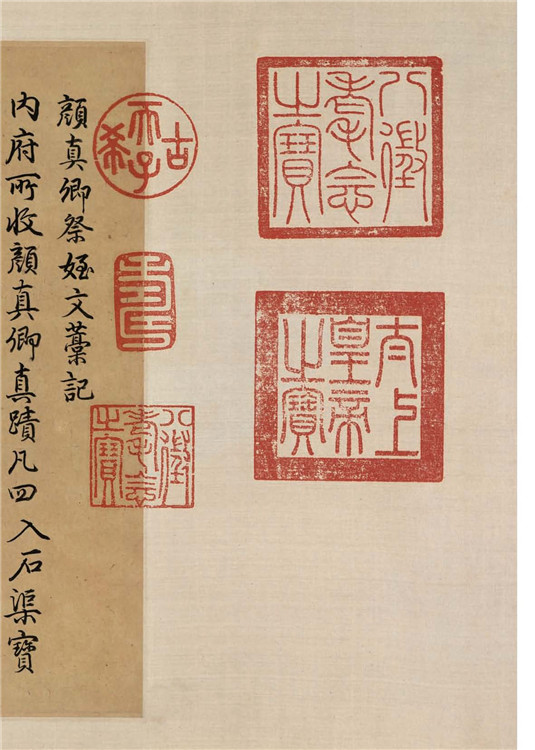 八徵
耄念
之寶
太上
皇帝
之寶
古希天子
壽
八徵
耄念
之寶
顏真卿祭姪文藁記
內府所收顏真卿真蹟凡四入石渠寶